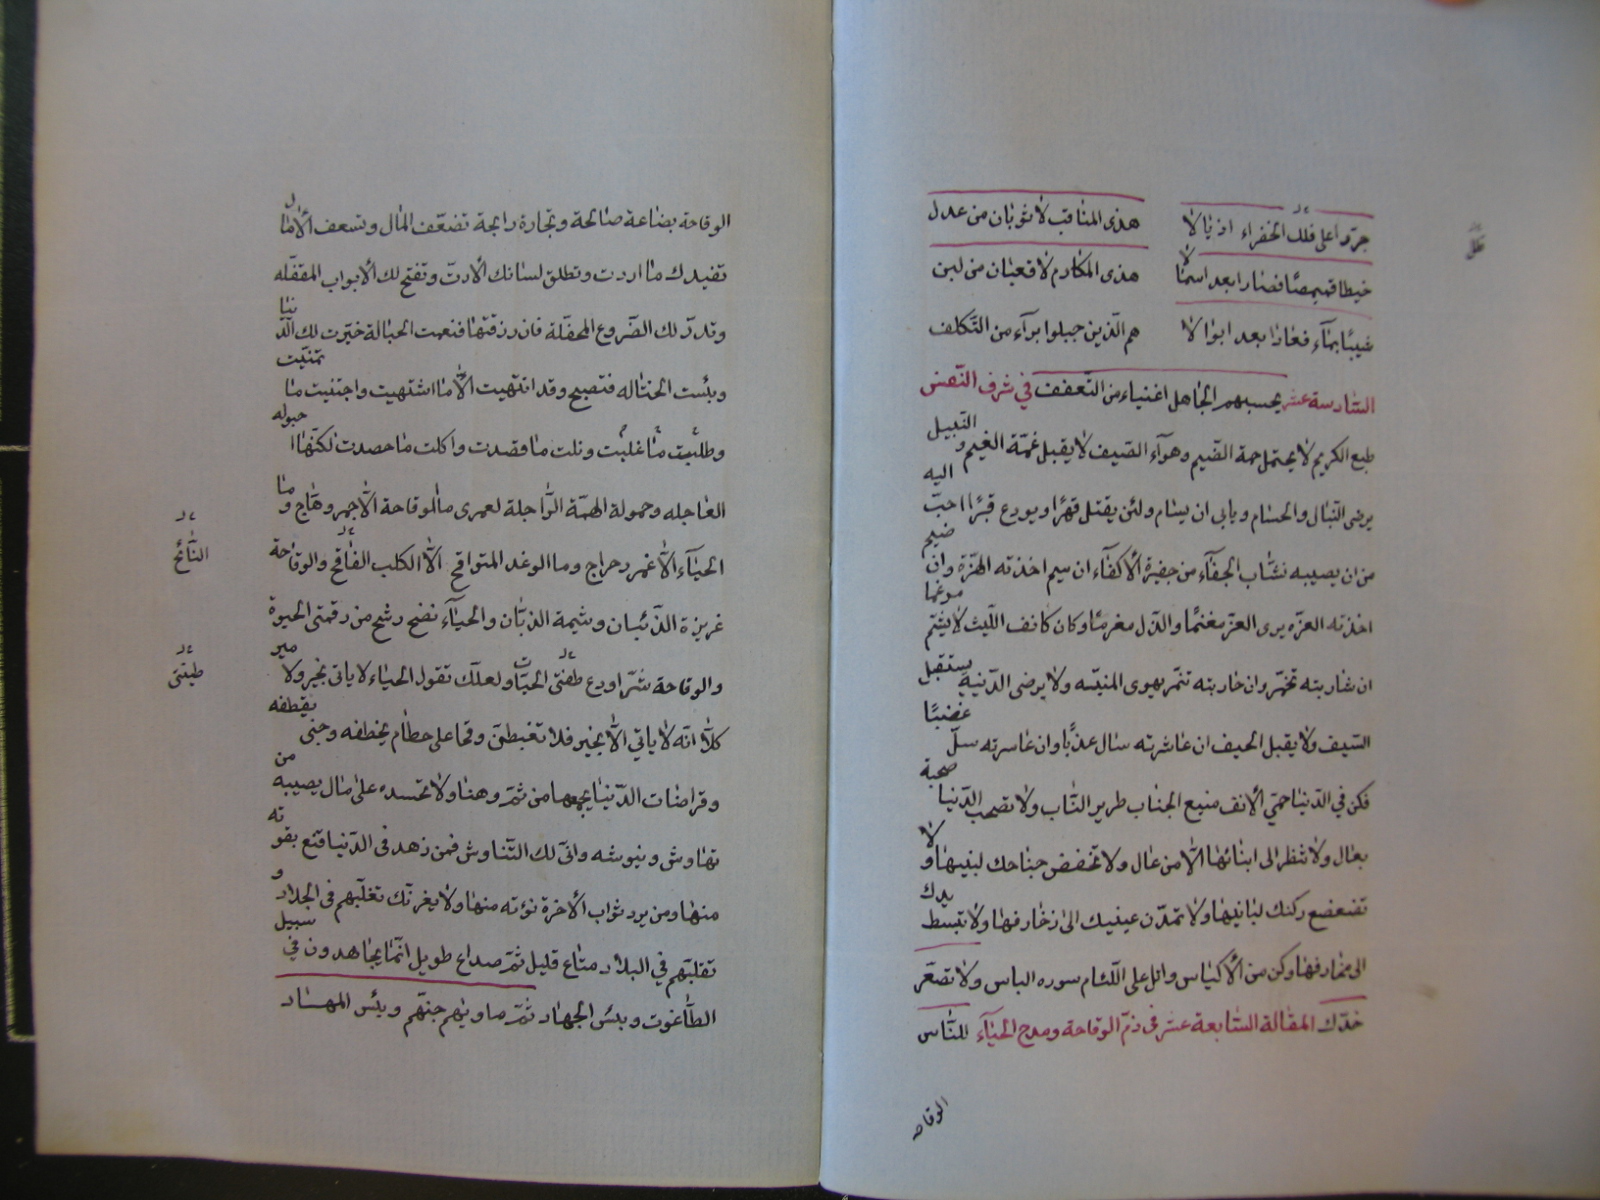 هذى المناقب لا ثوبان من عدن جرّوا على فلك الخضراء اذيالا
ظل
خيطا قميصًا فصارا بعد اسمالا هذى المكارم لا قعبان من لبن
شيبًا بمآء فعادا بعد ابوالا هم الّذين جبلوا برآء من التّكلف
يحسبهم الجاهل اغنياء من التّعفف السّادسة عشر فى شرف النّفس
طبع الكريم لا يحتمل حمة الضّيم وهوآء الصّيف لا يقبل غمّة الغيم والنّبيل
يرضى النّبال والحسام ويابى ان يسام ولئن يقتل قهرًا ويودع قبرًا احبّ اليه
من ان يصيبه نشّاب الجفآء من جفيرة الأكفآء ان سيم اخذته الهزّة وان ضيم
اخذته العزّه يرى العزّ مغنمًا والذّل مغرمًا وكان كانف اللّيث لا يشتم مرغما
ان شاربته تخمّر وان حاربته تنمّر يهوى المنيّه ولا يرضى الدّنية يستقبل
السّيف ولا يقبل الحيف ان عاشرته سال عذبًا وان عاسرته سلّ عضبًا
فكن فى الدّنيا حمىّ الأنف منيع الجناب طرير النّاب ولا تصحب الدّنيا صحبة
بعال ولا تنظر الى ابنائها الّا من عال ولا تخفض جناحك لبنيها ولا
تضعضع ركنك لبانيها ولا تمدّن عينيك الى زخارفها ولا تبسط يدك
الى مخارفها وكن من الأكياس واتل على اللّئام سوره الياس ولا تصعّر
خدّك للنّاس المقالة السّابعة عشر فى ذمّ الوقاحة ومدح الحيآء
الوقاحه
الوقاحة بضاعة صالحة وتجارة رابحة تضعّف المال وتسعف الأمال
تفيدك ما اردت وتطلق لسانك ألا درت وتفتح لك الأبواب المقفّله
وتدرّ لك الضّروع المحفّلة فان رزقتها فنعمت الحبالة خيّرت لك الدّنيا
وبئست الحثاله فتصبح وقد انتهيت الّا ما اشتهيت واجتنيت ما تمنّيت
وطلبت ما غلبت ونلت ما قصدت واكلت ما حصدت لكنّها احبوله
العاجله وحمولة الهمّة الرّاجلة لعمرى ما الوقاحة الّا جمر وهّاج وما
الحيآء الّا غمر رجراج وما الوغد المتواقح الّا الكلب الفاقح والوقاحة
النّابح
غريزة الذّئبان وشيمة الذبّان والحيآء نضح رشح من رقمتى الحيوة
والوقاحة شرّ اودع طفتى الحيّات ولعلّك تقول الحياء لا ياتى بخير ولا مير
طبقتى
كلّا انّه لا ياتى الّا بخير فلا تغبطنّ وقحا على حطام يخطفه وجنى يقطفه
وقراضات الدّنيا يجمعها من ثمّ وهنا ولا تحسده على مال يصيبه من
تهاوش وينوشه وانّى لك التّناوش فمن زهد فى الدّنيا قنع بقوته
منها ومن يرد ثواب الأخرة نؤته منها ولا يغرنّك تغلّبهم فى الجلاد و
تقلبّهم فى البلاد متاع قليل ثمّ صداع طويل انّما يجاهدون فى سبيل
الطّاغوت وبئس الجهاد ثمّ ماويهم جهنّم وبئس المهاد